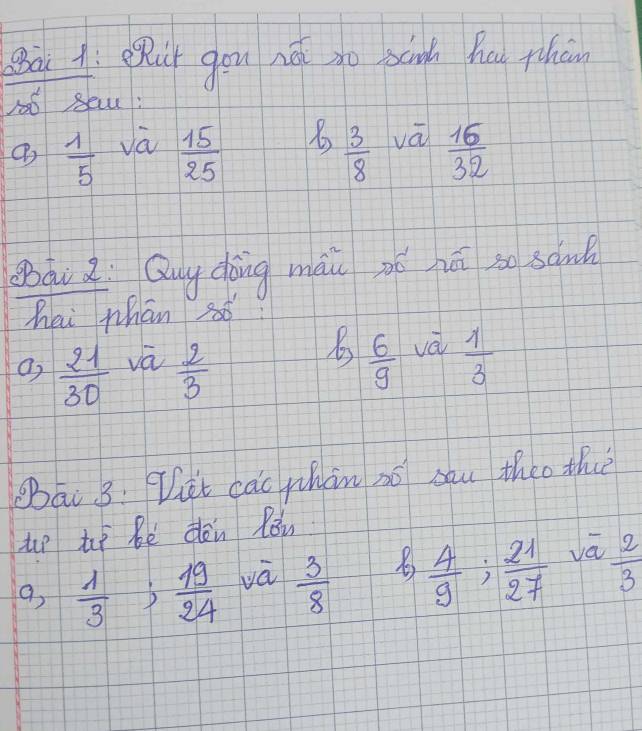 Bài 1: Rút gọn rồi so sánh hai phân
số sau:
a, 1/5 và 15/25 b, 3/8 và 16/32
Bài 2: Quy đồng mẫu số rồi so sánh
hai phân số:
a, 21/30 và 2/3 b, 6/9 và 1/3
Bài 3: Viết các phân số sau theo thứ
tự từ bé đến lớn.
a, 1/3 ; 19/24 và 3/8 b, 4/9 ; 21/27 và 2/3